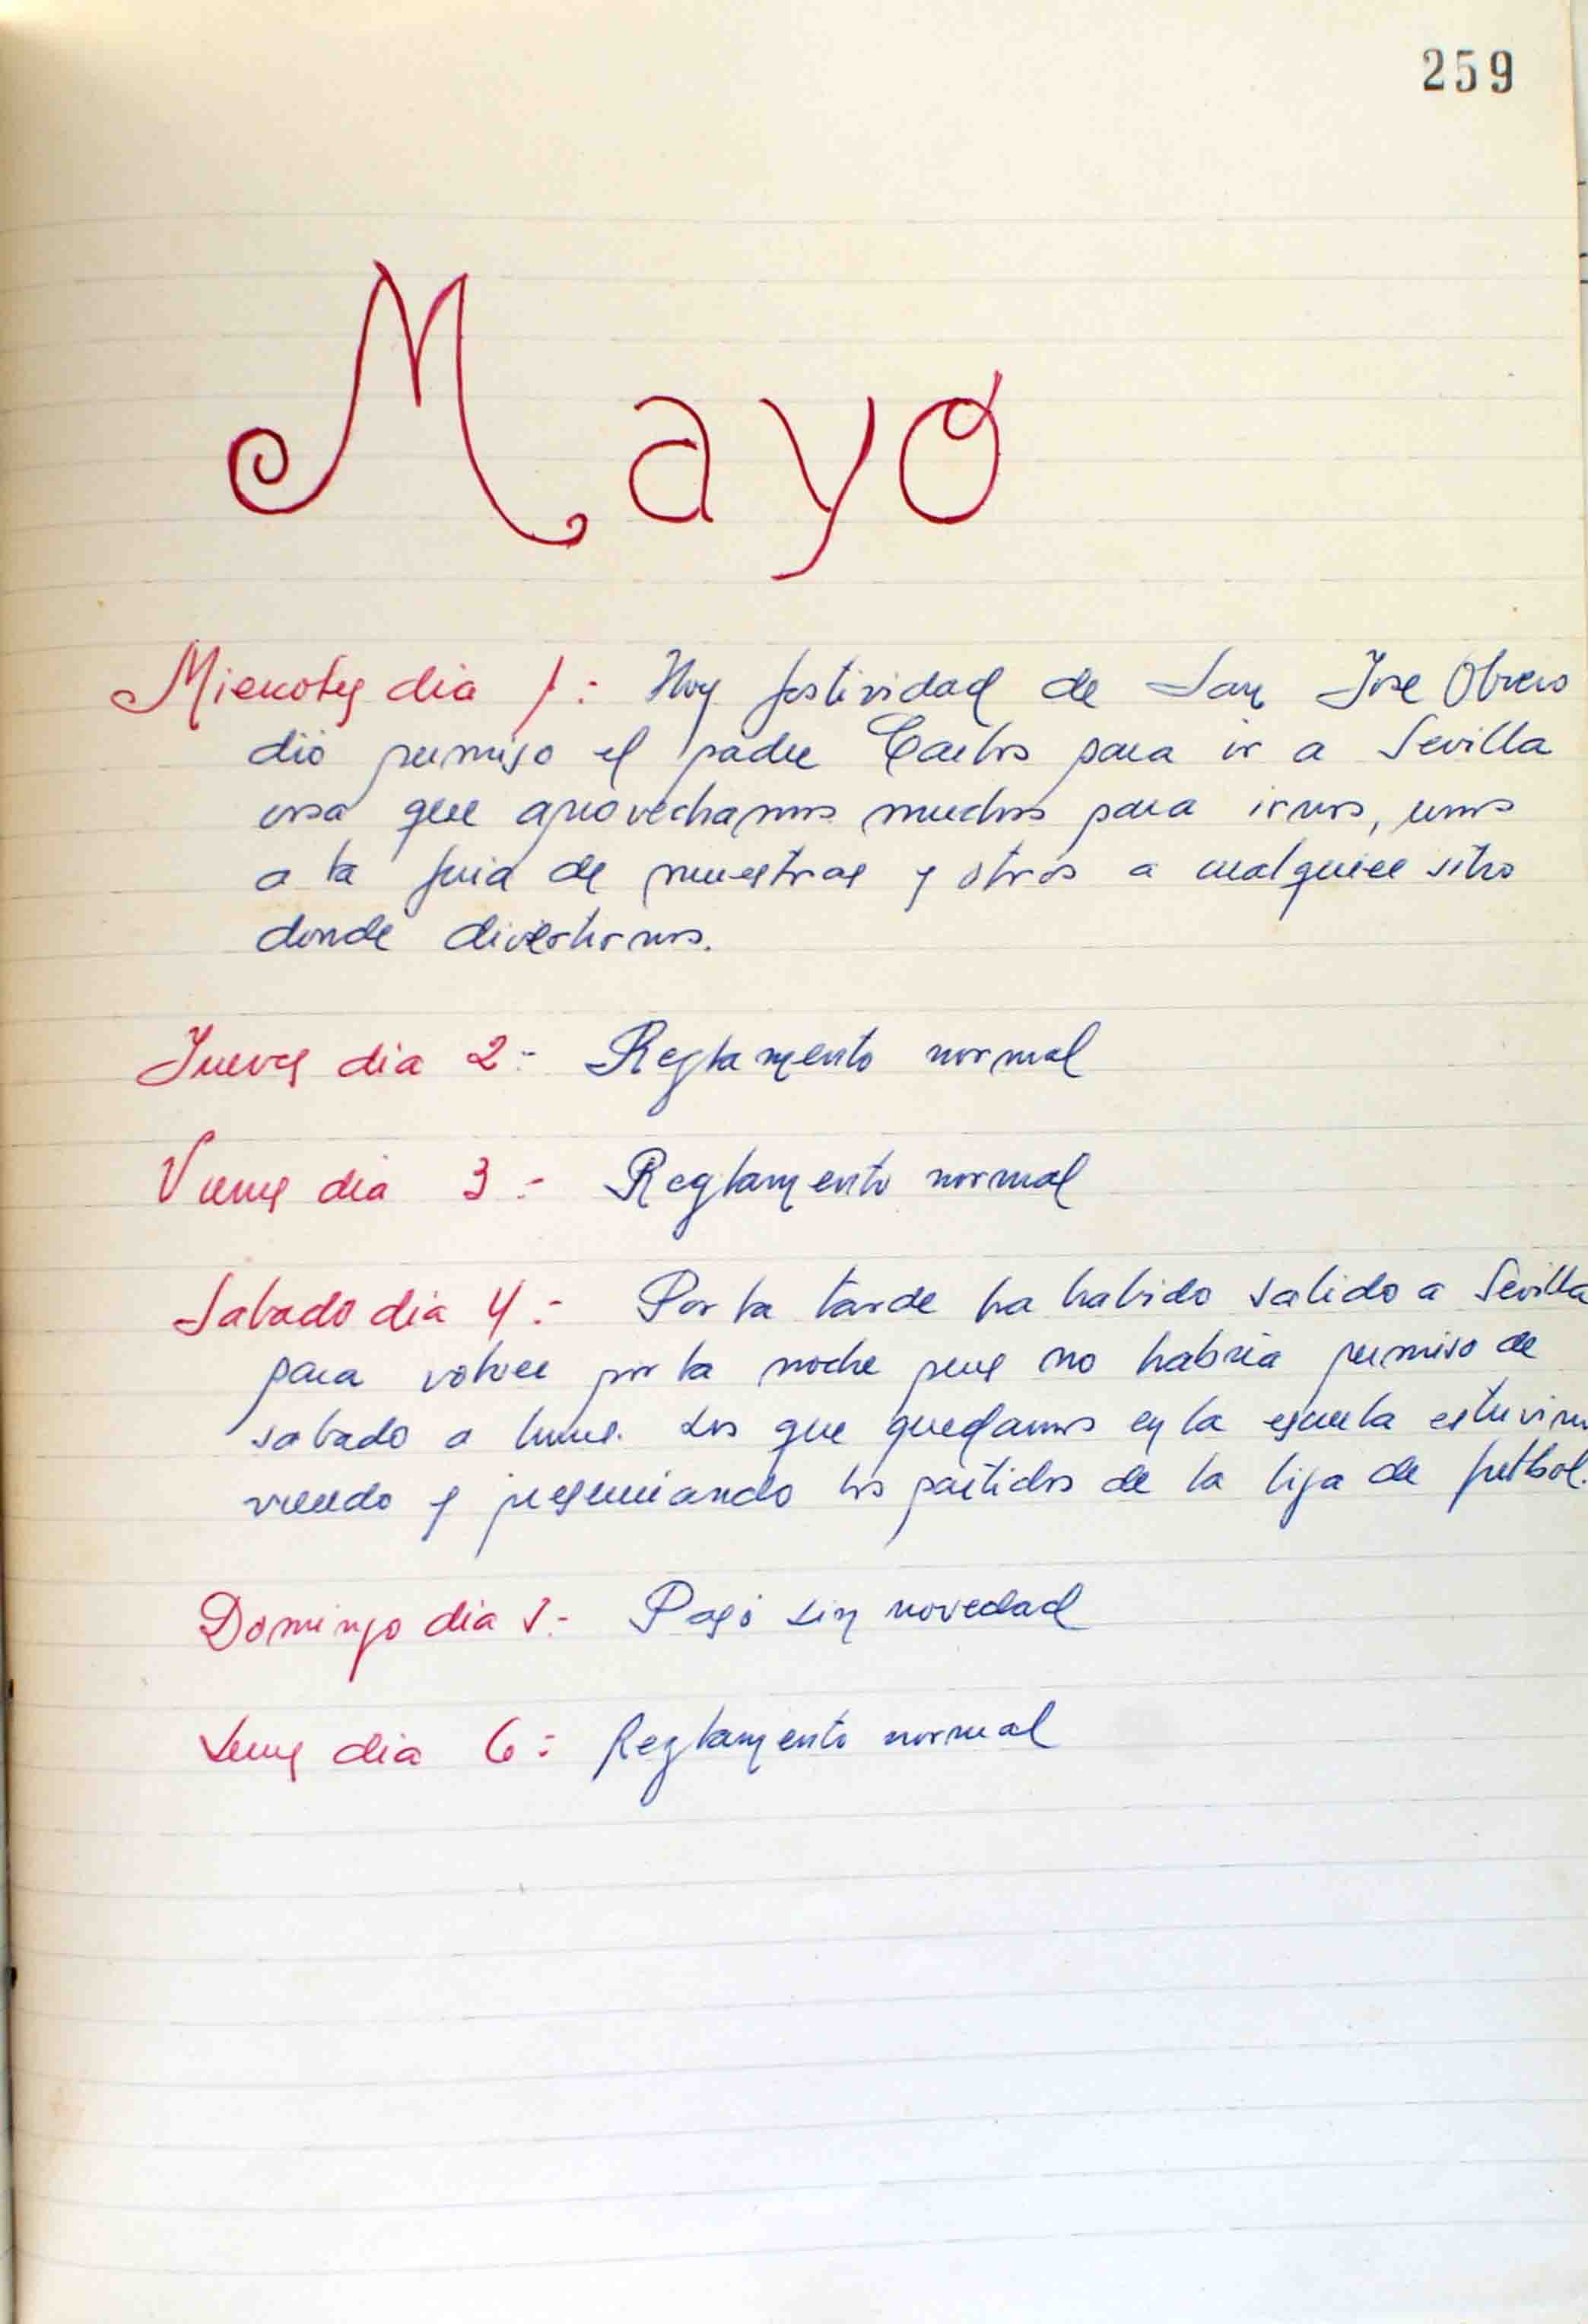 259
Mayo
Miercoles dia 1:- Hoy festividad de San Jose Obrero
dió permiso el padre Carlos para ir a Sevilla
cosa que aprovechamos muchos para irnos, unos
a la feria de muestras y otros a cualquier sitio
donde divertirnos.
Jueves dia 2:- Reglamento normal
Viernes dia 3:- Reglamento normal
Sabado dia 4:- Por la tarde ha habido salido a Sevilla
para volver por la noche pues no habria permiso de
sabado a lunes. Los que quedamos en la escuela estuvim
viendo y presenciando los partidos de la liga de futbol.
Domingo dia 5:- Pasó sin novedad
Lunes dia 6:- Reglamento normal